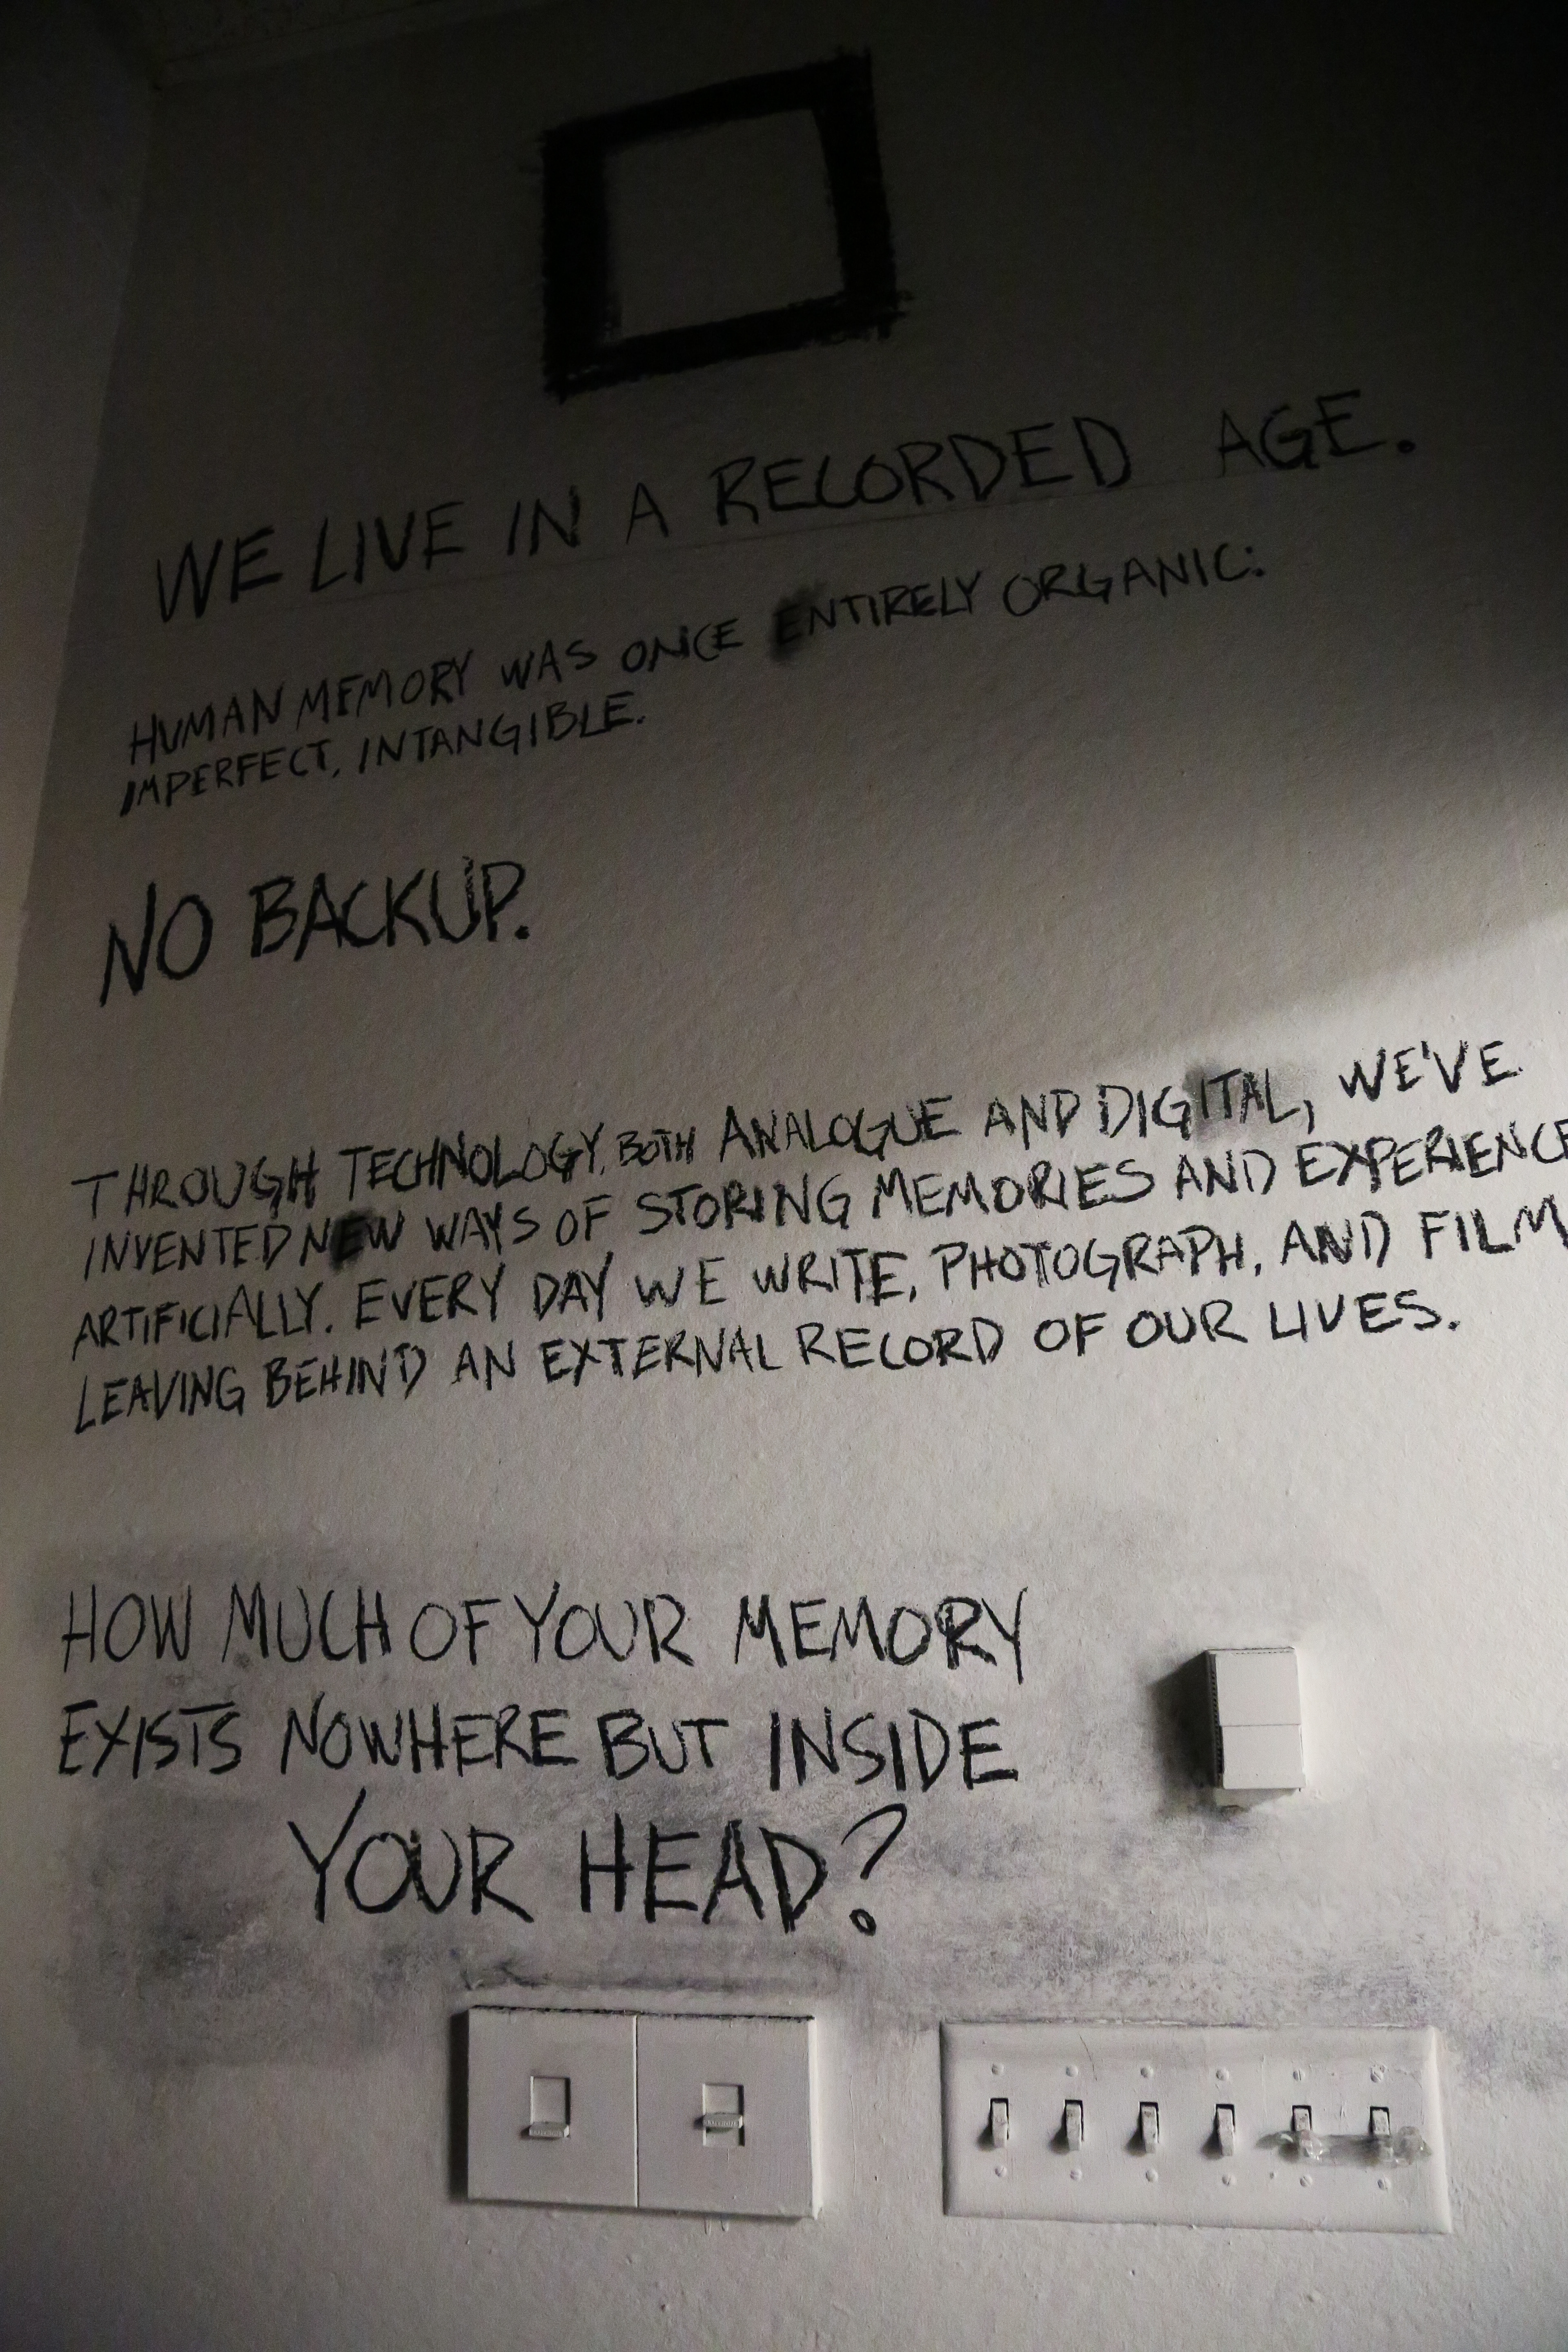 WE LIVE IN A RECORDED AGE.
HUMAN MEMORY WAS ONCE ENTIRELY ORGANIC:
IMPERFECT, INTANGIBLE.
NO BACKUP.
THROUGH TECHNOLOGY, BOTH ANALOGUE AND DIGITAL, WE'VE
INVENTED NEW WAYS OF STORING MEMORIES AND EXPERIENCE
ARTIFICIALLY. EVERY DAY WE WRITE, PHOTOGRAPH, AND FILM
LEAVING BEHIND AN EXTERNAL RECORD OF OUR LIVES.
HOW MUCH OF YOUR MEMORY
EXISTS NOWHERE BUT INSIDE
YOUR HEAD?